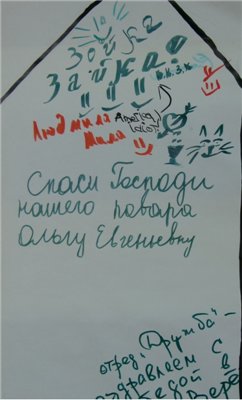 Зойка
Зайка
Людмила
Мила
Спаси Господи
нашего повара
Ольгу Евгеньевну
отряд „Дружба"-
здравляем с
бедой в